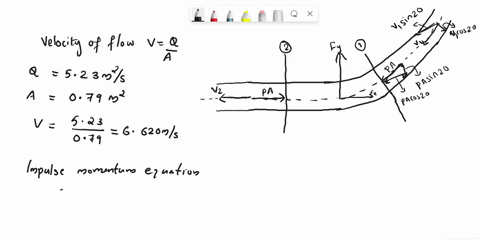 Velocity of flow V = Q/A
Q = 5.23 m³/s
A = 0.79 m²
V = 5.23/0.79 = 6.620 m/s
Impulse momentum equation
②
Fy
①
V₂
PA
PA
V₁sin20
V₁cos20
PAsin20
PAcos20